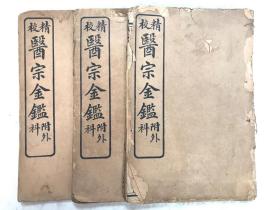 精校
醫宗金鑑
附外科
精校
醫宗金鑑
附外科
精校
醫宗金鑑
附外科